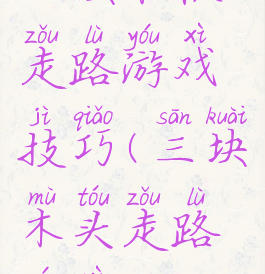 zǒu lù yóu xì
走路游戏
jì qiǎo sān kuài
技巧(三块
mù tóu zǒu lù
木头走路